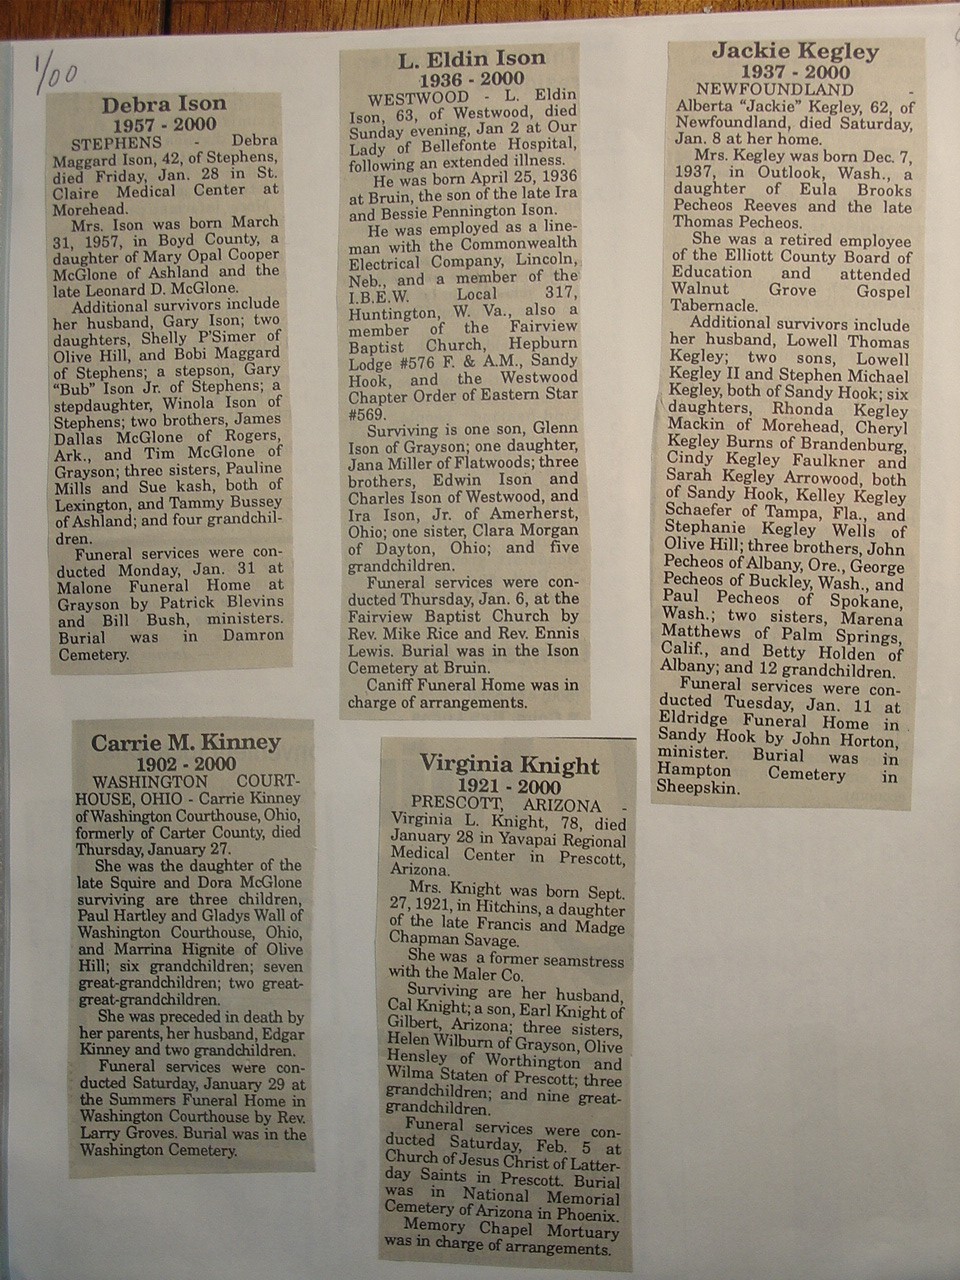 1/00
Debra Ison
1957 - 2000
STEPHENS - Debra
Maggard Ison, 42, of Stephens,
died Friday, Jan. 28 in St.
Claire Medical Center at
Morehead.
Mrs. Ison was born March
31, 1957, in Boyd County, a
daughter of Mary Opal Cooper
McGlone of Ashland and the
late Leonard D. McGlone.
Additional survivors include
her husband, Gary Ison; two
daughters, Shelly P'Simer of
Olive Hill, and Bobi Maggard
of Stephens; a stepson, Gary
"Bub" Ison Jr. of Stephens; a
stepdaughter, Winola Ison of
Stephens; two brothers, James
Dallas McGlone of Rogers,
Ark., and Tim McGlone of
Grayson; three sisters, Pauline
Mills and Sue kash, both of
Lexington, and Tammy Bussey
of Ashland; and four grandchil-
dren.
Funeral services were con-
ducted Monday, Jan. 31 at
Malone Funeral Home at
Grayson by Patrick Blevins
and Bill Bush, ministers.
Burial was in Damron
Cemetery.
Carrie M. Kinney
1902 - 2000
WASHINGTON COURT-
HOUSE, OHIO - Carrie Kinney
of Washington Courthouse, Ohio,
formerly of Carter County, died
Thursday, January 27.
She was the daughter of the
late Squire and Dora McGlone
surviving are three children,
Paul Hartley and Gladys Wall of
Washington Courthouse, Ohio,
and Marrina Hignite of Olive
Hill; six grandchildren; seven
great-grandchildren; two great-
great-grandchildren.
She was preceded in death by
her parents, her husband, Edgar
Kinney and two grandchildren.
Funeral services were con-
ducted Saturday, January 29 at
the Summers Funeral Home in
Washington Courthouse by Rev.
Larry Groves. Burial was in the
Washington Cemetery.
L. Eldin Ison
1936 - 2000
WESTWOOD - L. Eldin
Ison, 63, of Westwood, died
Sunday evening, Jan 2 at Our
Lady of Bellefonte Hospital,
following an extended illness.
He was born April 25, 1936
at Bruin, the son of the late Ira
and Bessie Pennington Ison.
He was employed as a line-
man with the Commonwealth
Electrical Company, Lincoln,
Neb., and a member of the
I.B.E.W. Local 317,
Huntington, W. Va., also a
member of the Fairview
Baptist Church, Hepburn
Lodge #576 F. & A.M., Sandy
Hook, and the Westwood
Chapter Order of Eastern Star
#569.
Surviving is one son, Glenn
Ison of Grayson; one daughter,
Jana Miller of Flatwoods; three
brothers, Edwin Ison and
Charles Ison of Westwood, and
Ira Ison, Jr. of Amerherst,
Ohio; one sister, Clara Morgan
of Dayton, Ohio; and five
grandchildren.
Funeral services were con-
ducted Thursday, Jan. 6, at the
Fairview Baptist Church by
Rev. Mike Rice and Rev. Ennis
Lewis. Burial was in the Ison
Cemetery at Bruin.
Caniff Funeral Home was in
charge of arrangements.
Virginia Knight
1921 - 2000
PRESCOTT, ARIZONA -
Virginia L. Knight, 78, died
January 28 in Yavapai Regional
Medical Center in Prescott,
Arizona.
Mrs. Knight was born Sept.
27, 1921, in Hitchins, a daughter
of the late Francis and Madge
Chapman Savage.
She was a former seamstress
with the Maler Co.
Surviving are her husband,
Cal Knight; a son, Earl Knight of
Gilbert, Arizona; three sisters,
Helen Wilburn of Grayson, Olive
Hensley of Worthington and
Wilma Staten of Prescott; three
grandchildren; and nine great-
grandchildren.
Funeral services were con-
ducted Saturday, Feb. 5 at
Church of Jesus Christ of Latter-
day Saints in Prescott. Burial
was in National Memorial
Cemetery of Arizona in Phoenix.
Memory Chapel Mortuary
was in charge of arrangements.
Jackie Kegley
1937 - 2000
NEWFOUNDLAND -
Alberta "Jackie" Kegley, 62, of
Newfoundland, died Saturday,
Jan. 8 at her home.
Mrs. Kegley was born Dec. 7,
1937, in Outlook, Wash., a
daughter of Eula Brooks
Pecheos Reeves and the late
Thomas Pecheos.
She was a retired employee
of the Elliott County Board of
Education and attended
Walnut Grove Gospel
Tabernacle.
Additional survivors include
her husband, Lowell Thomas
Kegley; two sons, Lowell
Kegley II and Stephen Michael
Kegley, both of Sandy Hook; six
daughters, Rhonda Kegley
Mackin of Morehead, Cheryl
Kegley Burns of Brandenburg,
Cindy Kegley Faulkner and
Sarah Kegley Arrowood, both
of Sandy Hook, Kelley Kegley
Schaefer of Tampa, Fla., and
Stephanie Kegley Wells of
Olive Hill; three brothers, John
Pecheos of Albany, Ore., George
Pecheos of Buckley, Wash., and
Paul Pecheos of Spokane,
Wash.; two sisters, Marena
Matthews of Palm Springs,
Calif., and Betty Holden of
Albany; and 12 grandchildren.
Funeral services were con-
ducted Tuesday, Jan. 11 at
Eldridge Funeral Home in
Sandy Hook by John Horton,
minister. Burial was in
Hampton Cemetery in
Sheepskin.